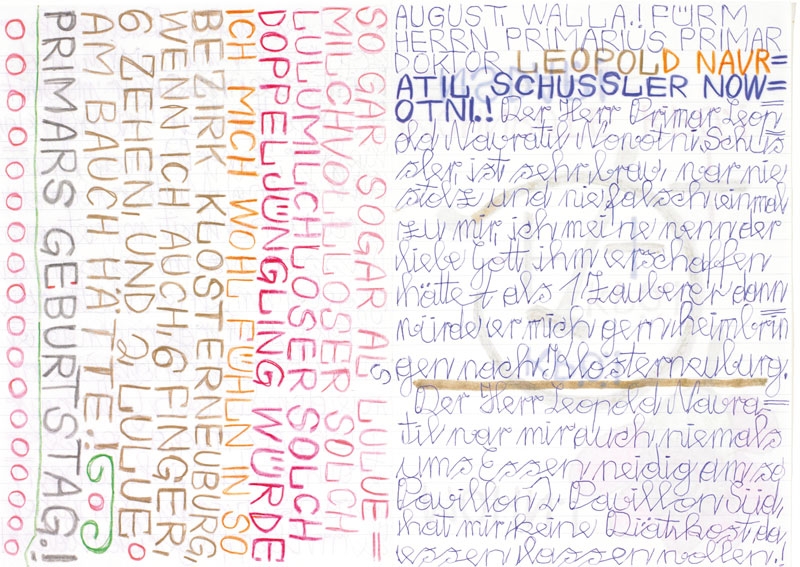 SO GAR SOGAR ALS LULUE=
MILCHVOLLLOSER SOLCH
LULUMILCHLOSER SOLCH
DOPPELJÜNGLING WÜRDE
ICH MICH WOHL FÜHLN IN SO
BEZIRK KLOSTERNEUBURG,
WENN ICH AUCH, 6 FINGER,
6 ZEHEN, UND 2, LULUE
AM BAUCH HÄTTE.!
PRIMARS GEBURTSTAG.!
AUGUSTI WALLA.! FÜRM
HERRN PRIMARIUS PRIMAR
DOKTOR LEOPOLD NAVR=
ATIL SCHUSSLER NOW=
OTNI.! Der Herr Primar Leop=
old Navratil Novotni Schüs=
sler ist sehr brav, war nie
stolz und nie falsch einmal
zu mir, ich meine wenn der
liebe Gott ihm erschaffen
hätte als 1 Zauberer dann
würde er mich gern heimbrin=
gen nach Klosterneuburg.
Der Herr Leopold Navra=
til war mir auch niemals
ums Essen neidig am so
Pavillon 2 Pavillon Süd,
hat mir keine Diätkost da
essen lassen wollen.!